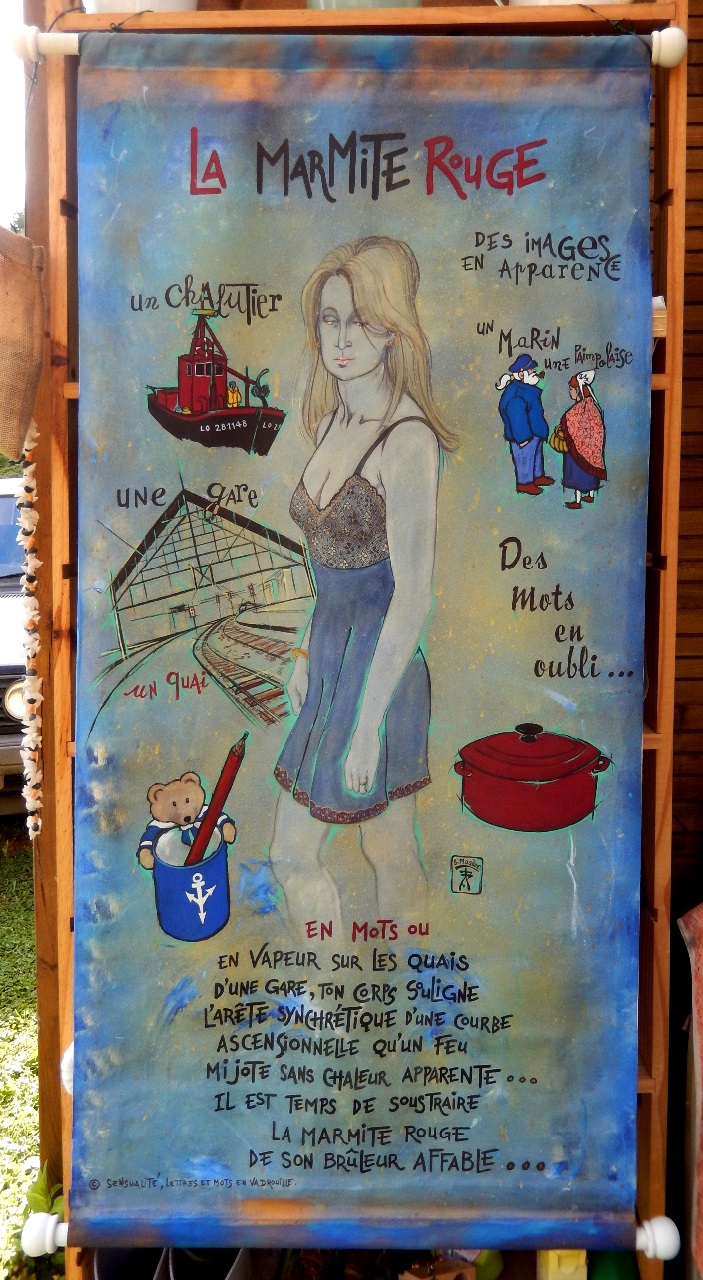 LA MARMITE ROUGE
DES IMAGES
EN APPARENCE
un CHALUTIER
UN MARIN
UNE PAIMPOLAISE
LO 281148
LO 2
UNE gare
Des
Mots
en
oubli...
UN QUAI
EN MOTS OU
EN VAPEUR SUR LES QUAIS
D'UNE GARE, TON CORPS SOULIGNE
L'ARÊTE SYNCHRÉTIQUE D'UNE COURBE
ASCENSIONNELLE QU'UN FEU
MIJOTE SANS CHALEUR APPARENTE...
IL EST TEMPS DE SOUSTRAIRE
LA MARMITE ROUGE
DE SON BRÛLEUR AFFABLE...
© SENSUALITÉ, LETTRES ET MOTS EN VADROUILLE.